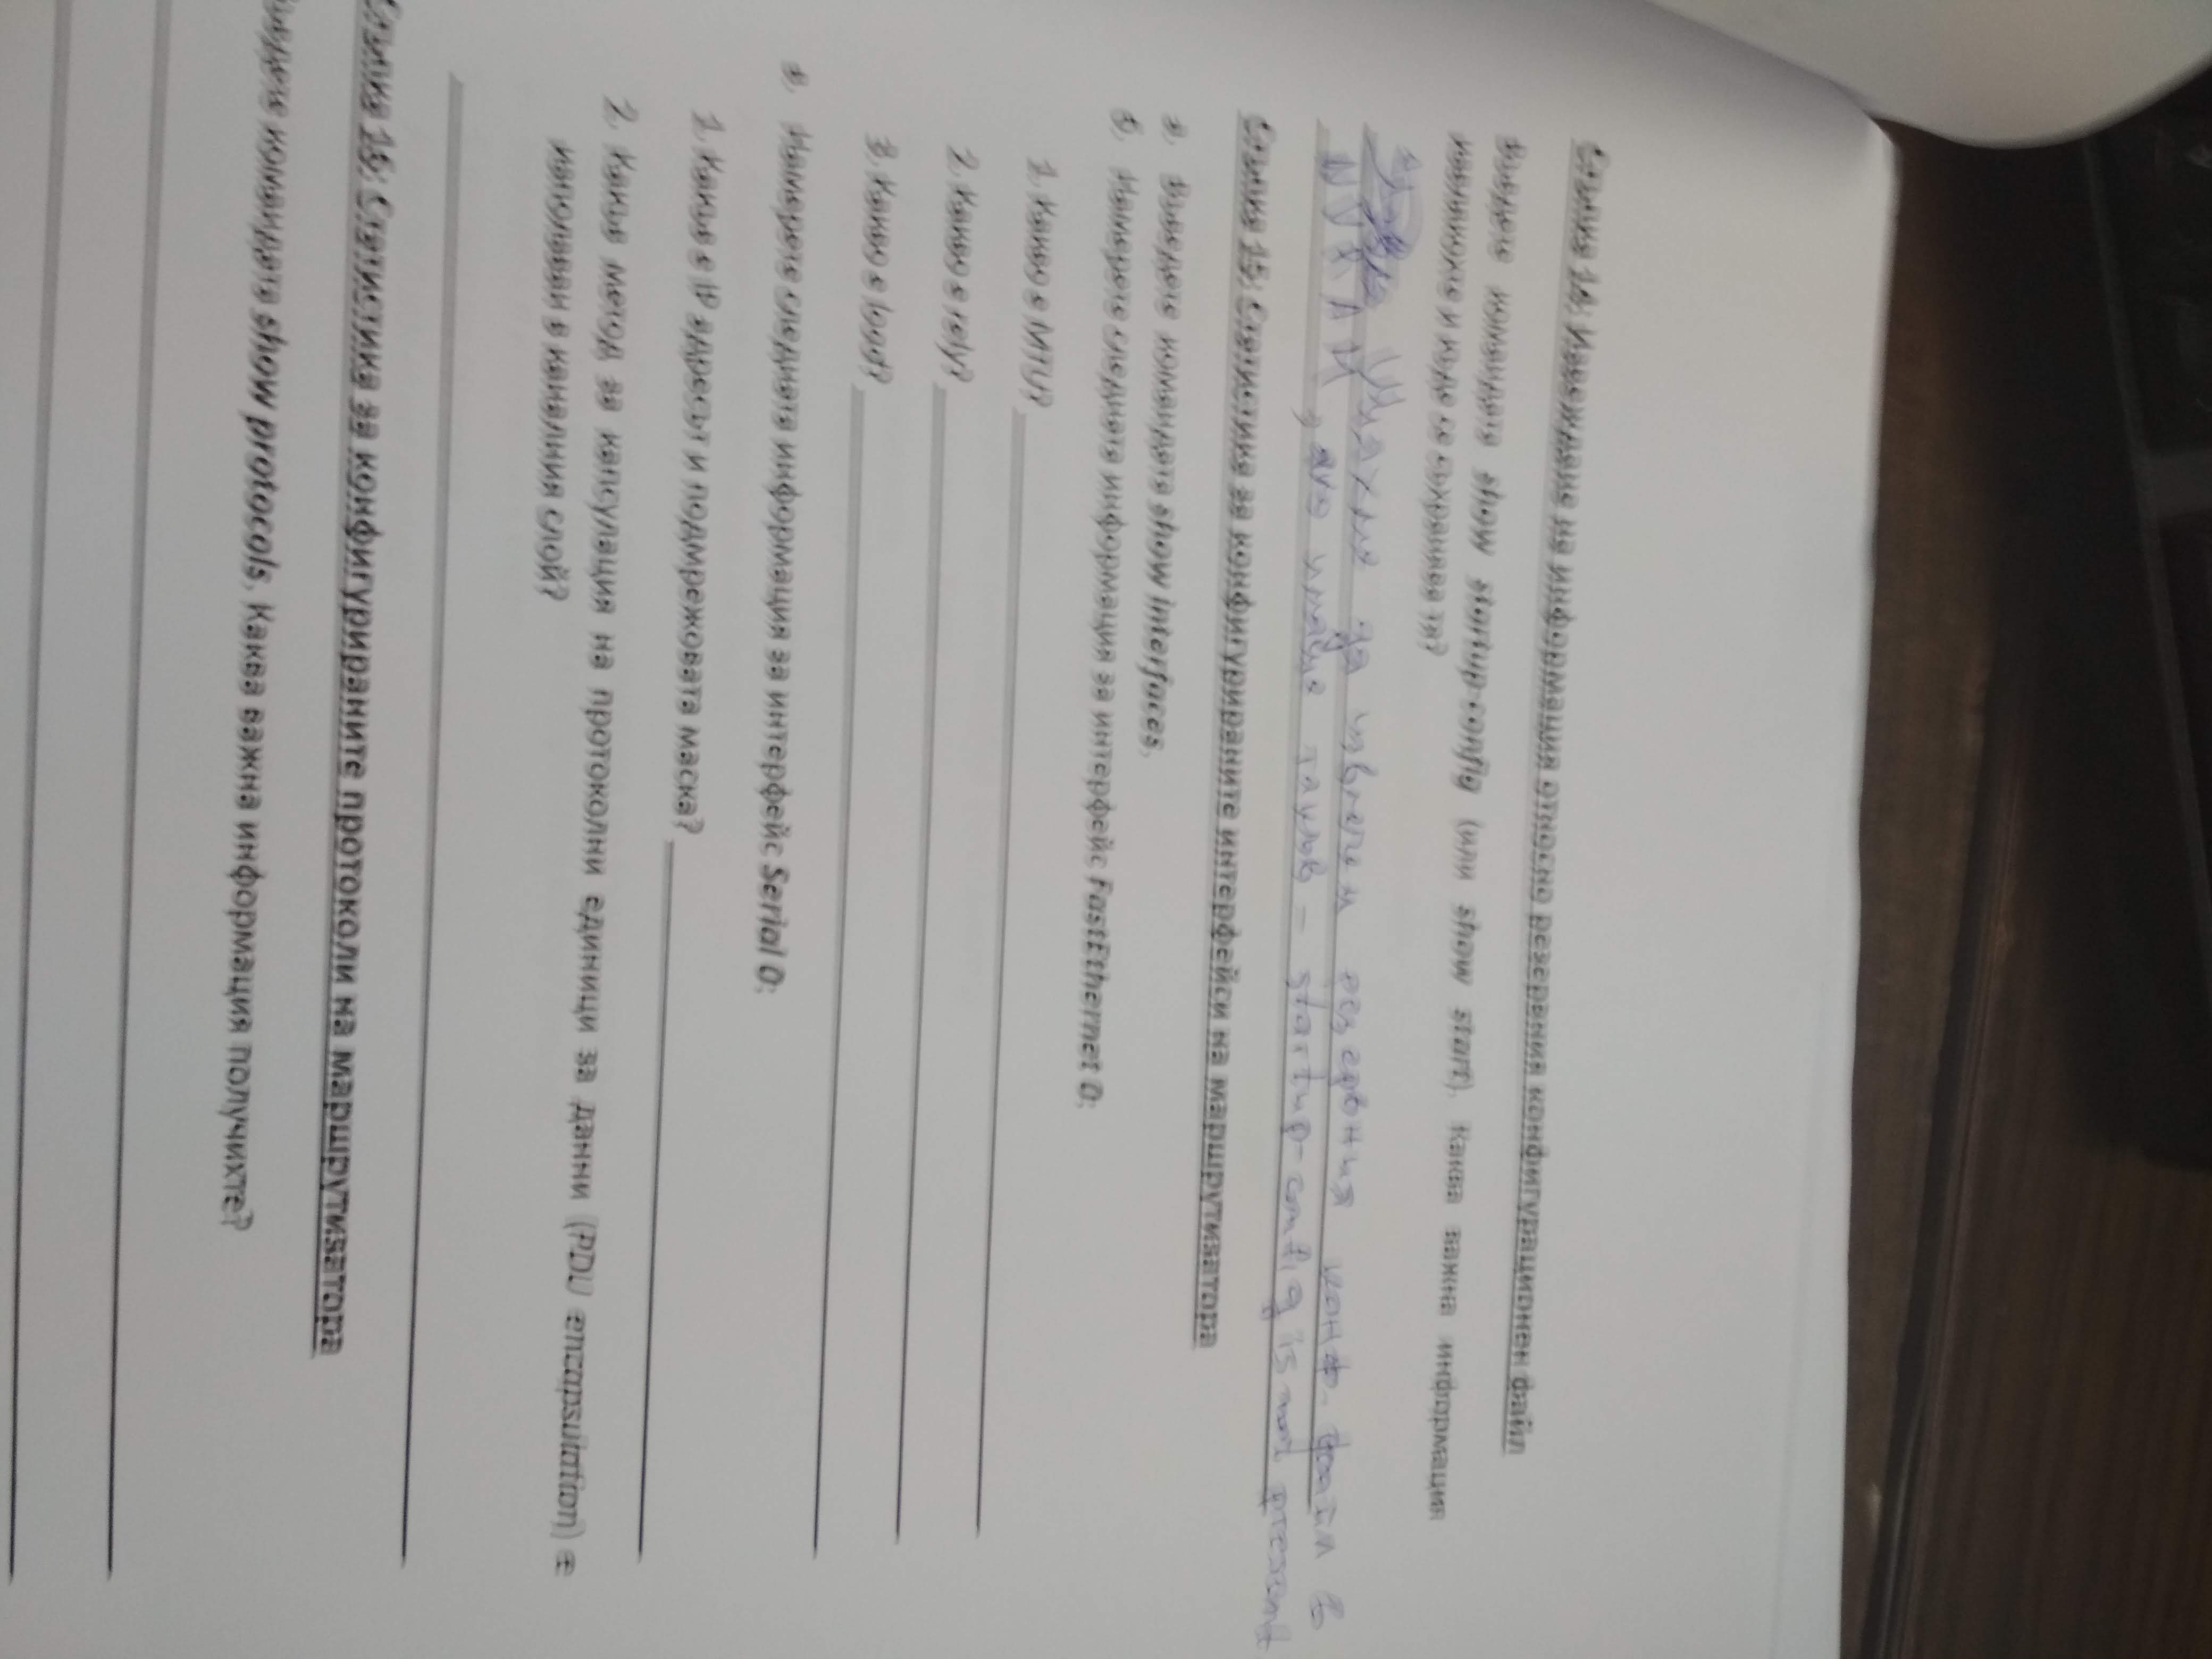 Стъпка 14: Извеждане на информация относно резервния конфигурационен файл
Въведете командата show startup-config (или show start). Каква важна информация
получихте и къде се съхранява тя?
да изведем резервния конф. файл в
NVRAM, ако има такъв – startup-config is not present
Стъпка 15: Статистика за конфигурираните интерфейси на маршрутизатора
а. Въведете командата show interfaces.
б. Намерете следната информация за интерфейс FastEthernet 0:
1. Какво е MTU?
2. Какво е rely?
3. Какво е load?
в. Намерете следната информация за интерфейс Serial 0:
1. Какъв е IP адресът и подмрежовата маска?
2. Какъв метод за капсулация на протоколни единици за данни (PDU encapsulation) е
използван в каналния слой?
Стъпка 16: Статистика за конфигурираните протоколи на маршрутизатора
командата show protocols. Каква важна информация получихте?